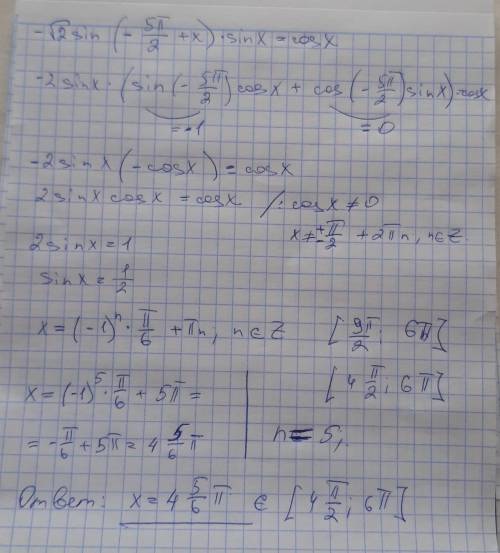 -√2 sin (-5π/2 + x) · sin x = cos x
-2 sin x · (sin (-5π/2) cos x + cos (-5π/2) sin x) = cos x
= -1 = 0
-2 sin x (-cos x) = cos x
2 sin x cos x = cos x /: cos x ≠ 0
2 sin x = 1 x ≠ ±π/2 + 2πn, n ∈ Z
sin x = 1/2
x = (-1)^n · π/6 + πn, n ∈ Z [9π/2; 6π]
x = (-1)^5 · π/6 + 5π = [4 π/2; 6π]
= -π/6 + 5π = 4 5/6 π n = 5;
Ответ: x = 4 5/6 π ∈ [4 π/2; 6π]